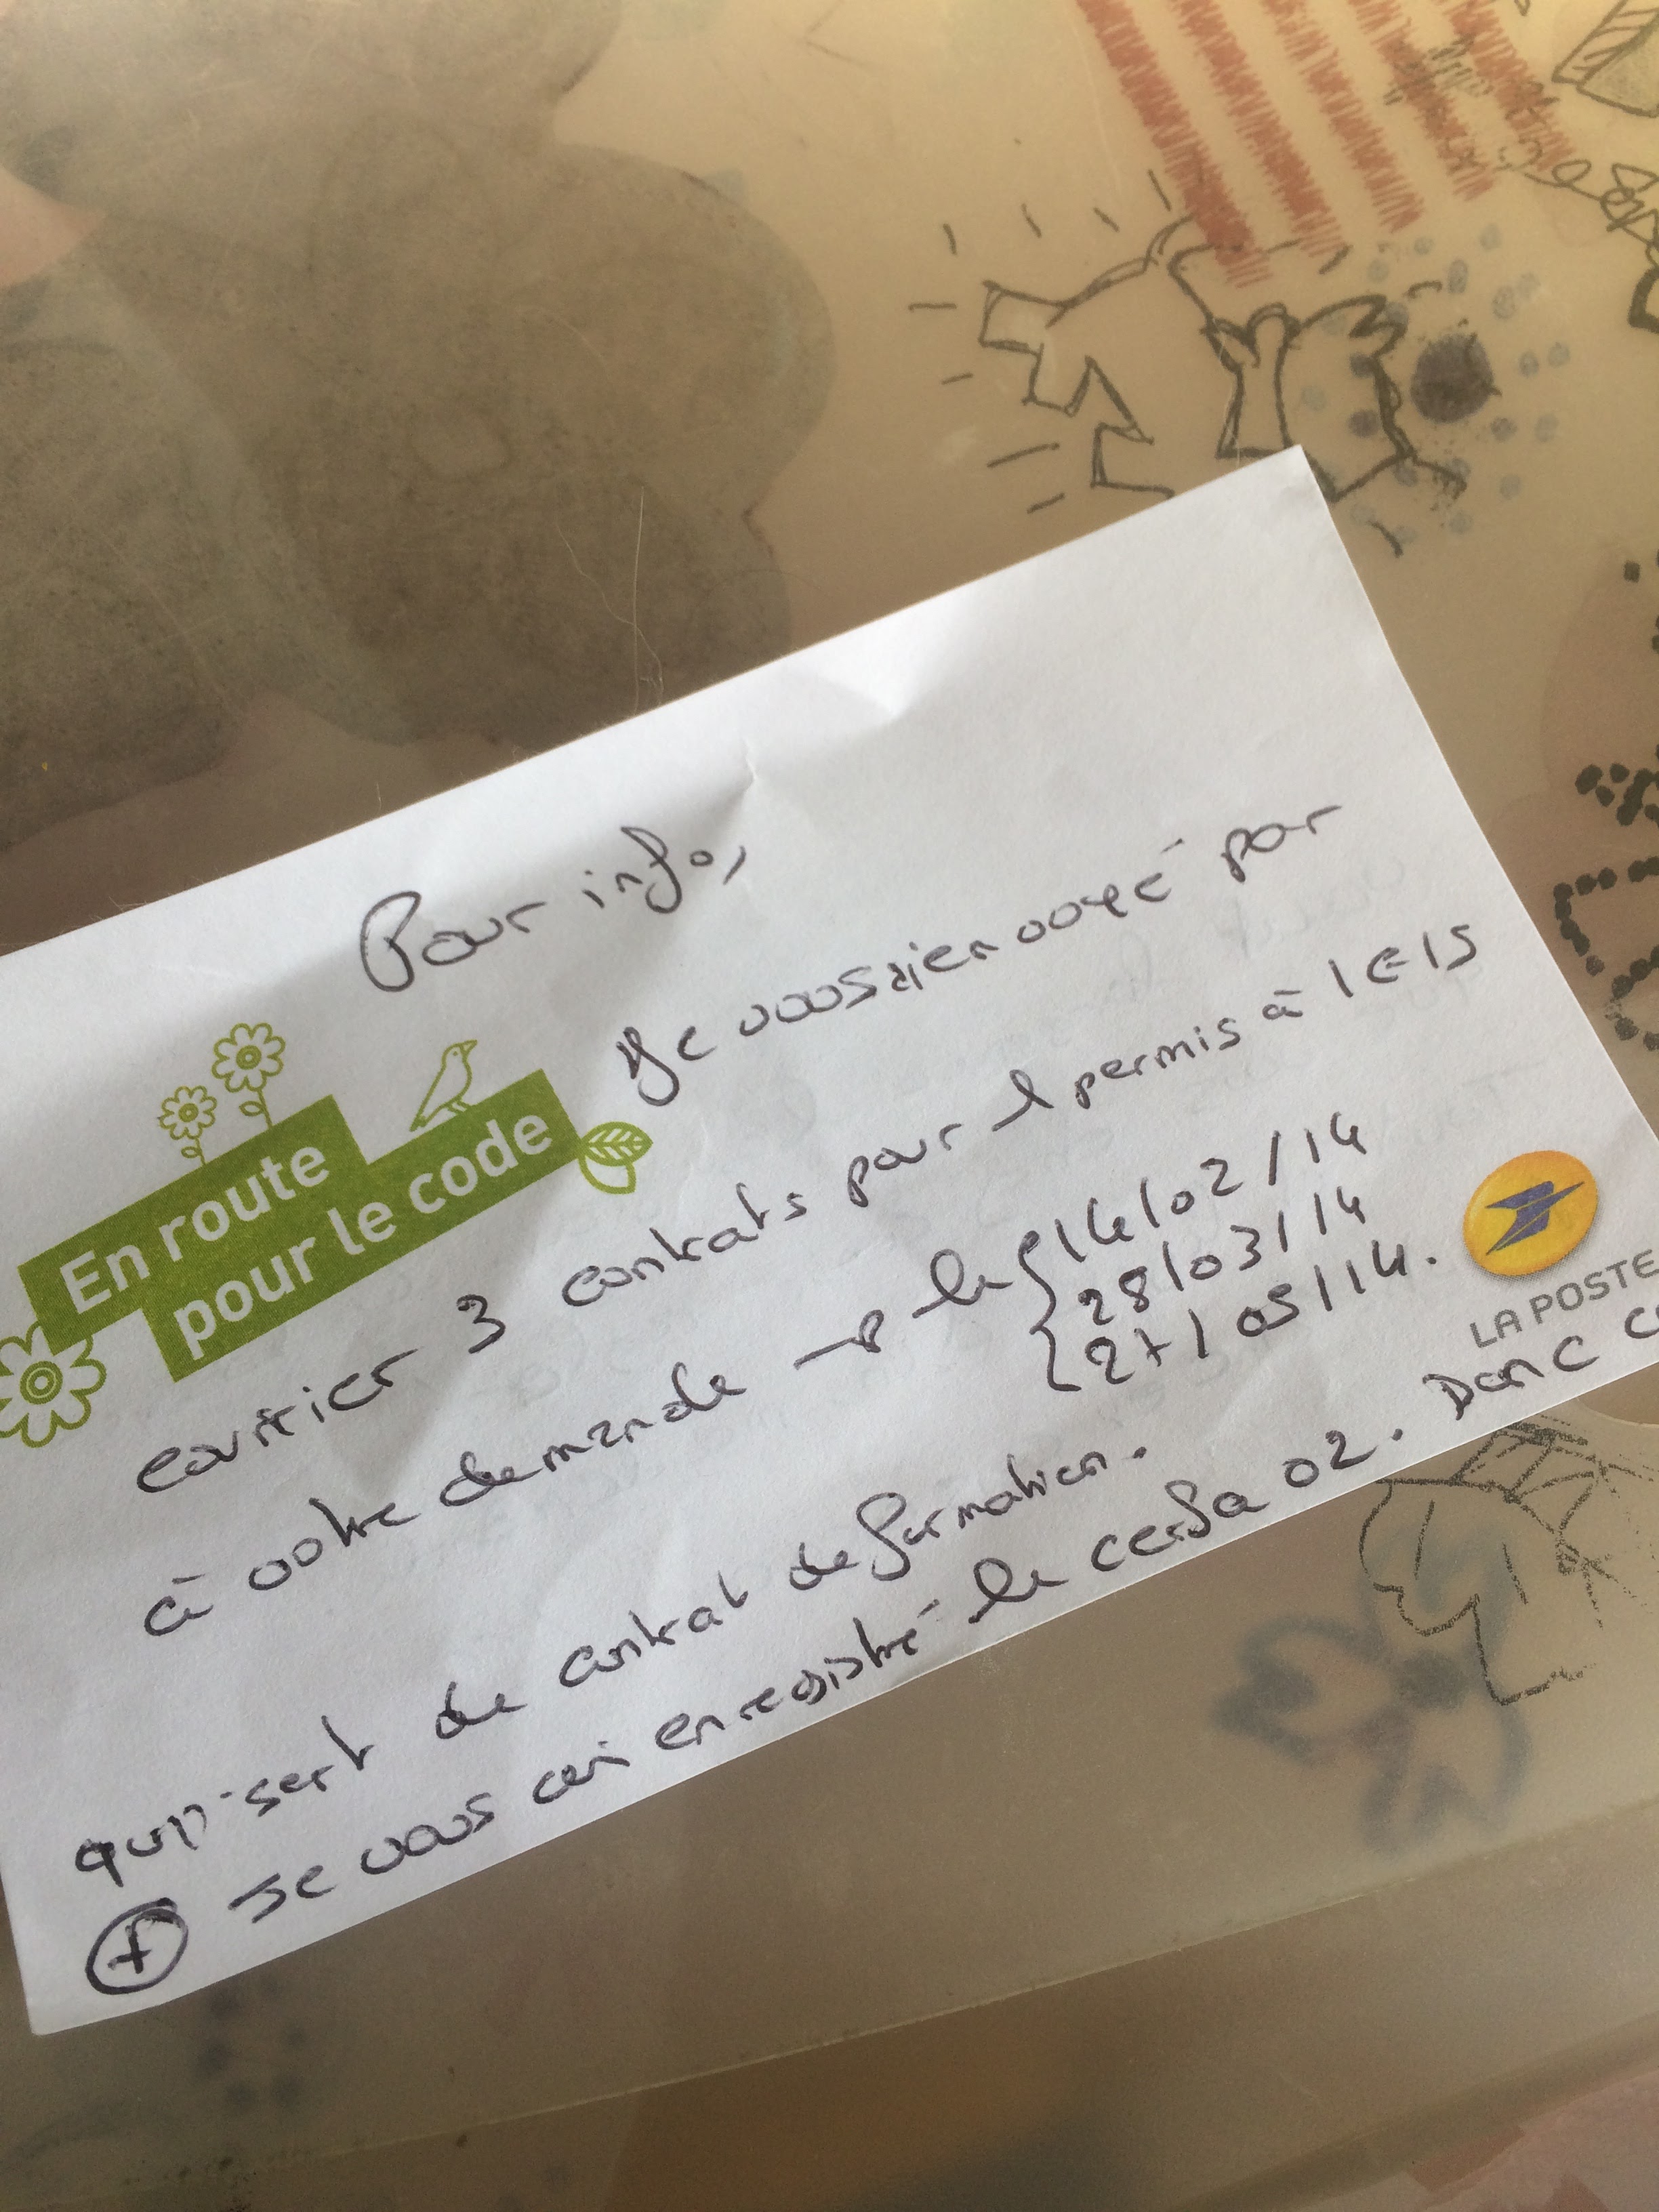 Pour info,
Je vous ai envoyé par
En route
pour le code
courrier 3 contrats pour le permis à 1€ 15
à votre demande → le { 14/02/14
28/03/14
27/05/14.
LA POSTE
qui sert de contrat de formation.
+ Je vous ai enregistré le cerfa 02. Donc